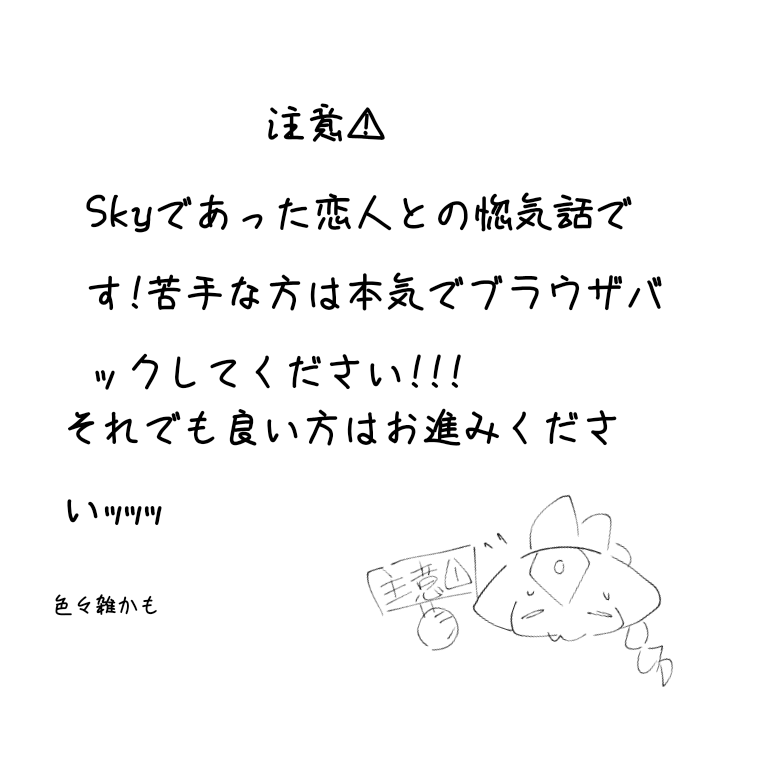 注意⚠
Skyであった恋人との惚気話で
す!苦手な方は本気でブラウザバ
ックしてください!!!
それでも良い方はお進みくださ
いッッッ
色々雑かも
注意⚠